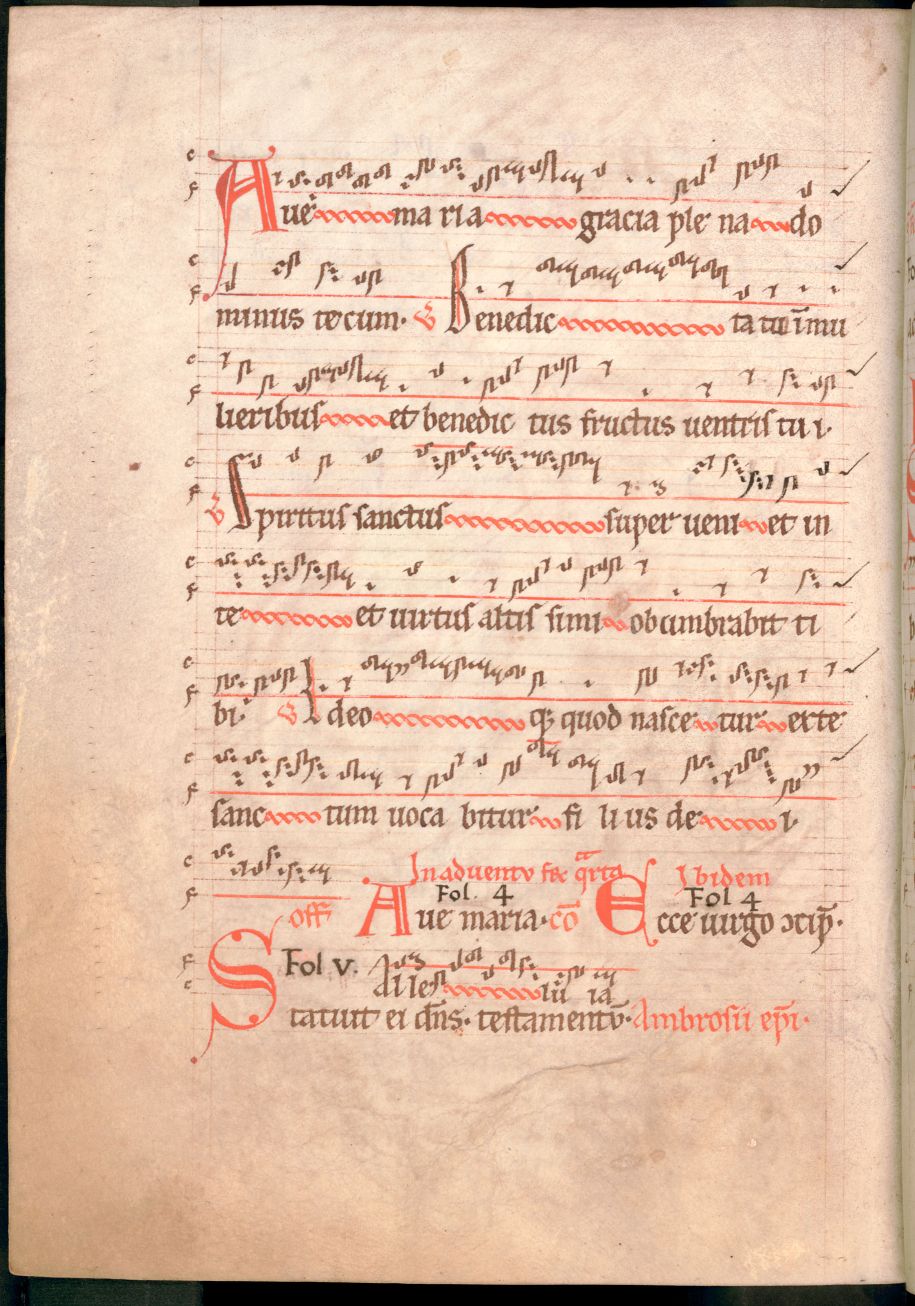 Aue ma ria gracia ple na do
minus tecum· V Benedic ta tu ī mu
lieribus et benedic tus fructus uentris tu i·
V Spiritus sanctus super ueni et in
te et uirtus altis simi obumbrabit ti
bi· V Ideo q; quod nasce tur exte
sanc tum uoca bitur fi li us de i·
In aduentu fer qrta Ibidem
Fol. 4 Fol 4
off Aue maria· cō Ecce uirgo ↄcip̄·
Fol v. alle lu ia
Statuit ei dn̄s· testamentū· Ambrosii ep̄i·